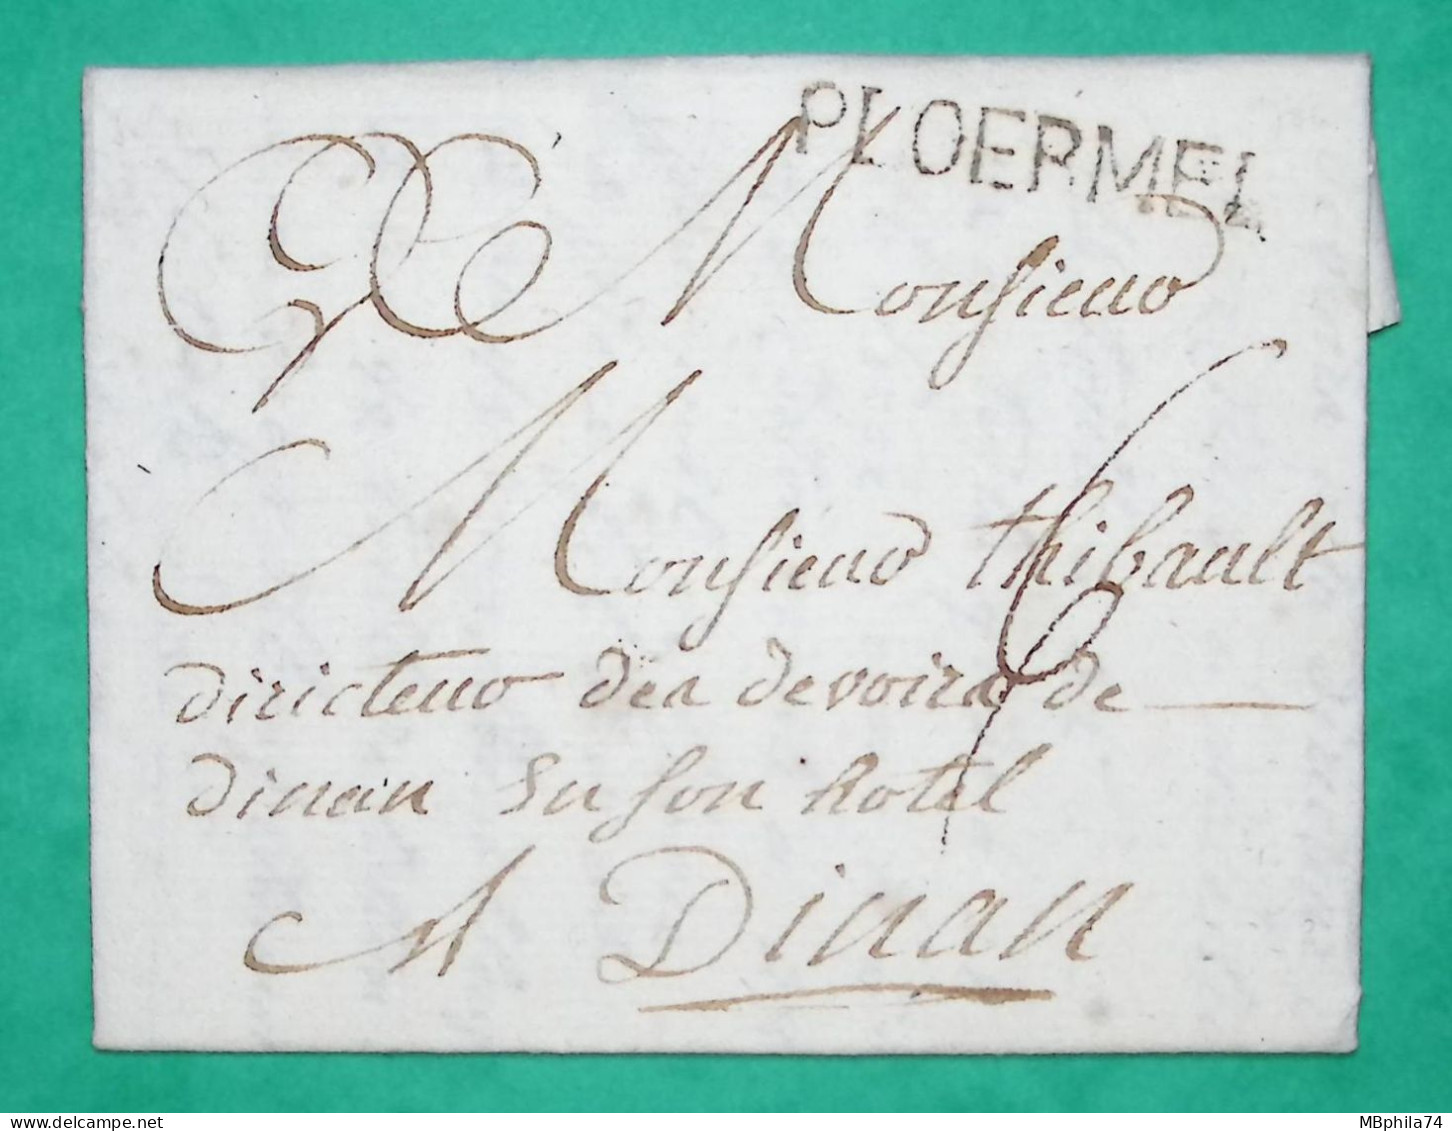 PLOERMEL
Monsieur
Monsieur thibault
6
diricteur des devoirs de
dinan en son hotel
A Dinan
MBphila74